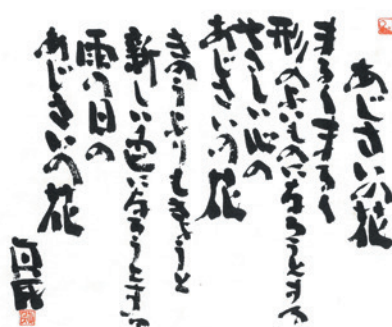 あじさいの花
まるくまるく
形のよいものになろうとする
やさしい心の
あじさいの花
きのうよりもきょうと
新しい色になろうとする
雨の日の
あじさいの花
真民